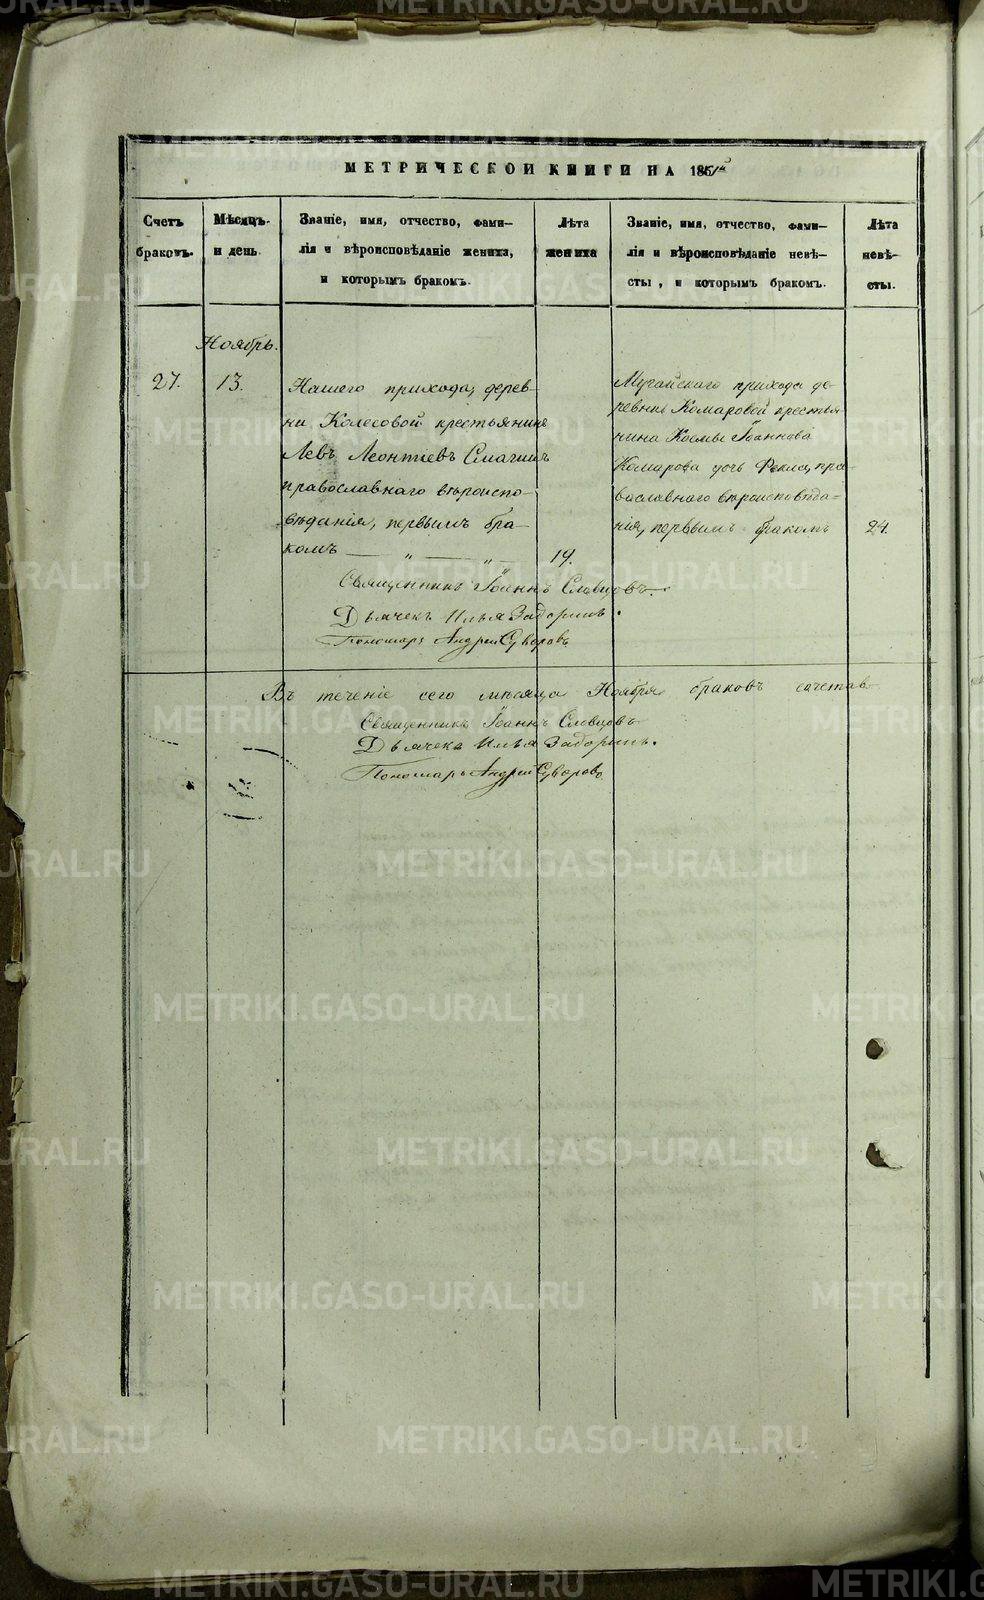 МЕТРИЧЕСКОЙ КНИГИ НА 1851й
Счетъ
браковъ.
Мѣсяцъ
и день.
Званіе, имя, отчество, фами-
лія и вѣроисповѣданіе жениха,
и которымъ бракомъ.
Лѣта
жениха
Званіе, имя, отчество, фами-
лія и вѣроисповѣданіе невѣ-
сты, и которымъ бракомъ.
Лѣта
невѣ-
сты.
Ноябрь.
27.
13.
Нашего прихода, дерев-
ни Колесовой крестьянинъ
Левъ Леонтіевъ Смагинъ
православнаго вѣроиспо-
вѣданія, первымъ бра-
комъ — „ — „ —
19.
Мугайскаго прихода де-
ревни Комаровой крестья-
нина Космы Іоаннова
Комарова дочь Фекла, пра-
вославнаго вѣроисповѣда-
нія, первымъ бракомъ
24.
Священникъ Іоаннъ Словцовъ.
Дьячекъ Илья Задоринъ.
Пономарь Андрей Суворовъ
Въ теченіе сего мѣсяца Ноября браковъ сочетав
Священникъ Іоаннъ Словцовъ
Дьячекъ Илья Задоринъ.
Пономарь Андрей Суворовъ
METRIKI.GASO-URAL.RU